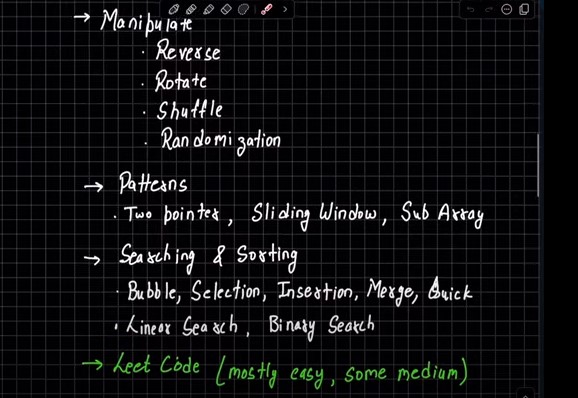 → Manipulate
· Reverse
· Rotate
· Shuffle
· Randomization
→ Patterns
· Two pointer, Sliding Window, Sub Array
→ Searching & Sorting
· Bubble, Selection, Insertion, Merge, Quick
· Linear Search, Binary Search
→ Leet Code (mostly easy, some medium)